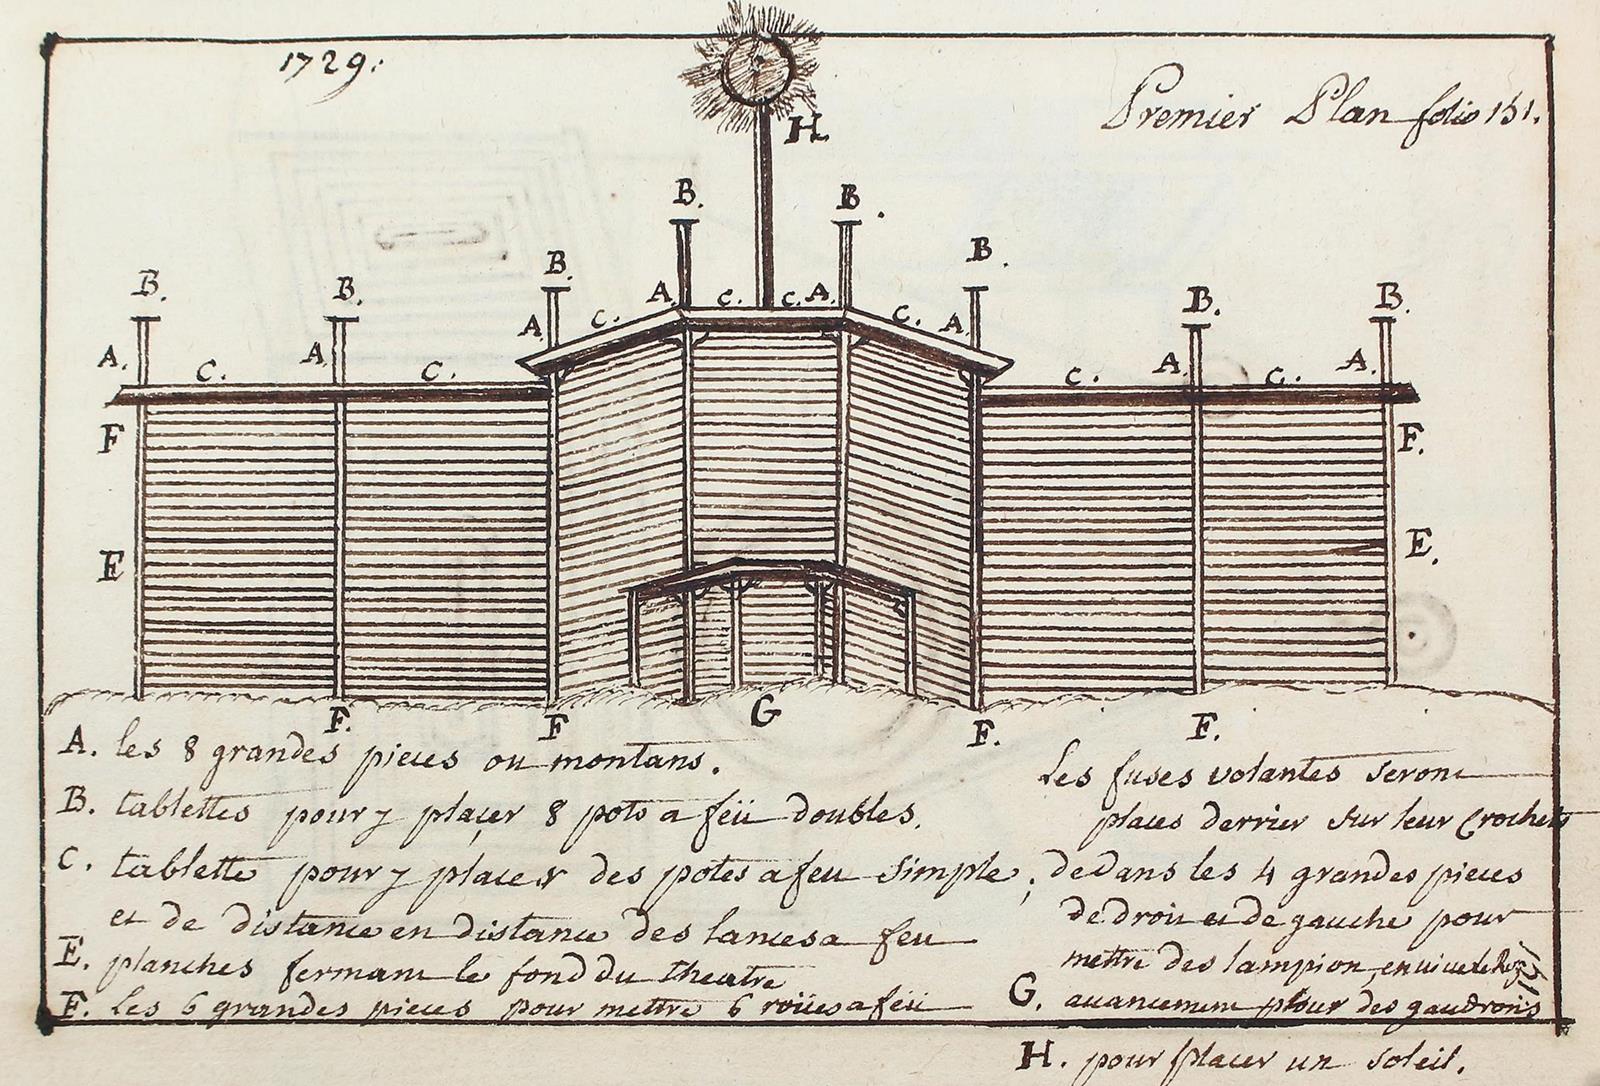 1729:
Premier Plan folio 151.
H.
B. B.
B. B.
B. B. B. B.
A. C. C. A.
A C. C. A.
A. C. A C. C. A. C. A.
F F.
E E.
G
F. F F. F.
A. les 8 grandes pieces ou montans.
B. tablettes pour y plaçer 8 pots a feü doubles.
C. tablette pour y placer des potes a feu simple;
et de distance en distance des lances a feu
E. planches fermant le fond du theatre
F. les 6 grandes pieces pour mettre 6 roües a feü
Les fuses volantes seront
places derrier sur leur Crochets
dedans les 4 grandes pieces
de droit et de gauche pour
mettre des lampion
G. avancement pour des gaudrons
H. pour placer un soleil.